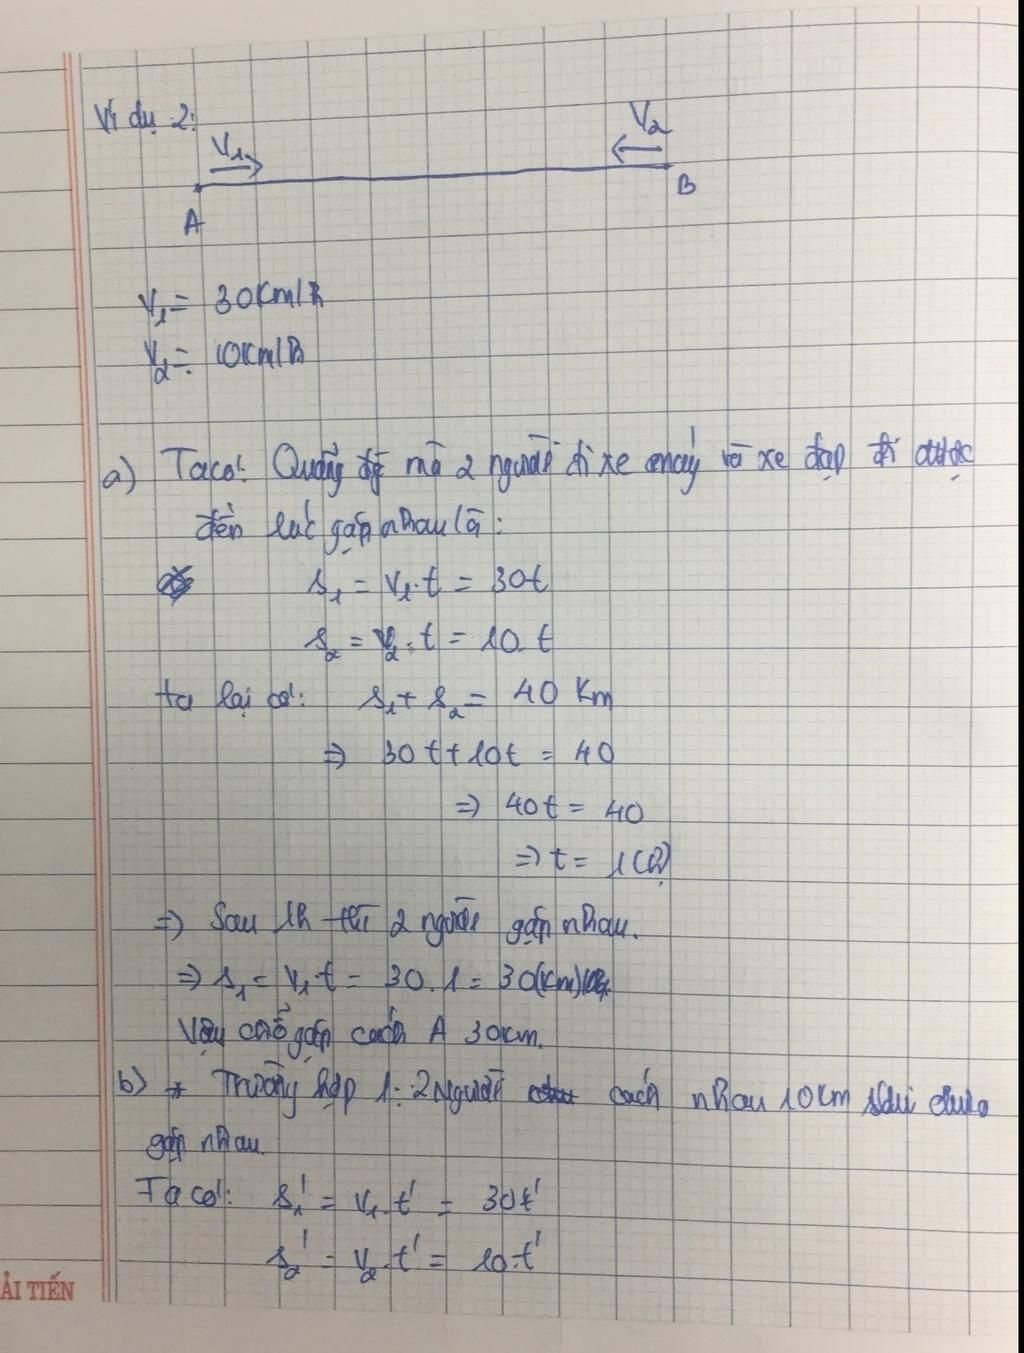 Ví dụ 2:
V₁ V₂
A B
V₁ = 30km/h
V₂ = 10km/h
a) Ta có: Quãng đg mà 2 người đi xe máy và xe đạp đi được
đến lúc gặp nhau là:
s₁ = v₁.t = 30t
s₂ = v₂.t = 10.t
ta lại có: s₁ + s₂ = 40 Km
=> 30t + 10t = 40
=> 40t = 40
=> t = 1(h)
=> Sau 1h thì 2 người gặp nhau.
=> s₁ = v₁t = 30.1 = 30(km)
Vậy chỗ gặp cách A 30km.
b) * Trường hợp 1: 2 Người cách nhau 10km khi chưa
gặp nhau.
Ta có: s₁' = v₁.t' = 30t'
s₂' = v₂.t' = 10.t'
ẢI TIẾN